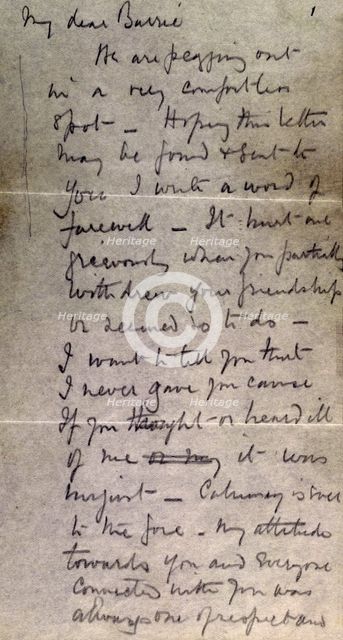 1
My dear Barrie
We are pegging out
in a very comfortless
spot – Hoping this letter
may be found & sent to
you I write a word of
farewell – It hurt me
grievously when you partially
withdrew your friendship
or seemed so to do –
I want to tell you that
I never gave you cause
If you thought or heard ill
of me or my it was
unjust – Calumny is ever
to the fore. My attitude
towards you and everyone
connected with you was
always one of respect and
Heritage Heritage
Heritage Heritage Heritage
Heritage Heritage